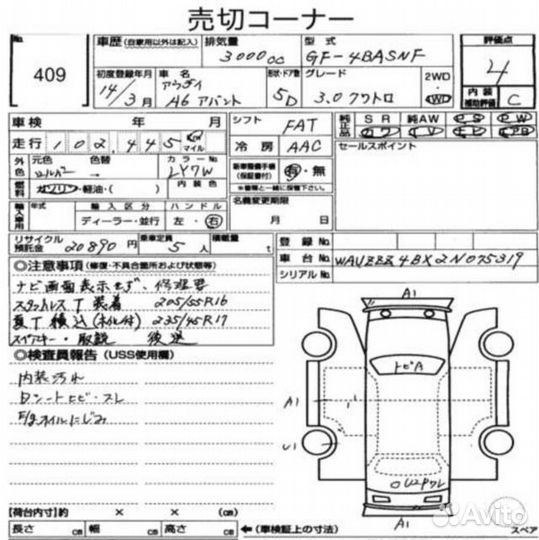 売切コーナー
No.
409
車歴 (自家用以外は記入)
排気量
3000cc
型式
GF-4BASNF
評価点
4
初度登録年月
14/3月
車名
アウディ
A6 アバント
形状・ドア数
5D
グレード
3.0クワトロ
2WD
4WD
内装
補助評価
C
車検 年 月
シフト
FAT
純正品
SR 純AW PS PW
走行 102,445 km
マイル
冷房
AAC
セールスポイント
外色
元色
シルバー
色替
カラーNo.
LY7W
新車整備手帳
(保証書付)
有・無
※書類と一緒に提出。
燃料
ガソリン・軽油・( )
輸入車用
年式
輸入区分
ディーラー・並行
ハンドル
左・右
名義変更期限
月 日
リサイクル
預託金
20890円
乗車定員
5人
積載量
t
登録No.
車台No.
WAUZZZ4BX2N075319
シリアルNo.
◎注意事項 (修復・不具合箇所および状態等)
ナビ画面表示せず、修理要
スタットレスT装着 205/55R16
夏T積込(ホイル付) 235/45R17
スペアキー・取説 後送
◎検査員報告 (USS使用欄)
内装汚れ
Dシートヒビ・スレ
E/gオイルにじみ
A1
トビA
A1
U1
A1
スペア
【荷台内寸】約 × × (cm)
長さ cm 幅 cm 高さ cm
←(車検証上の寸法)
Avito